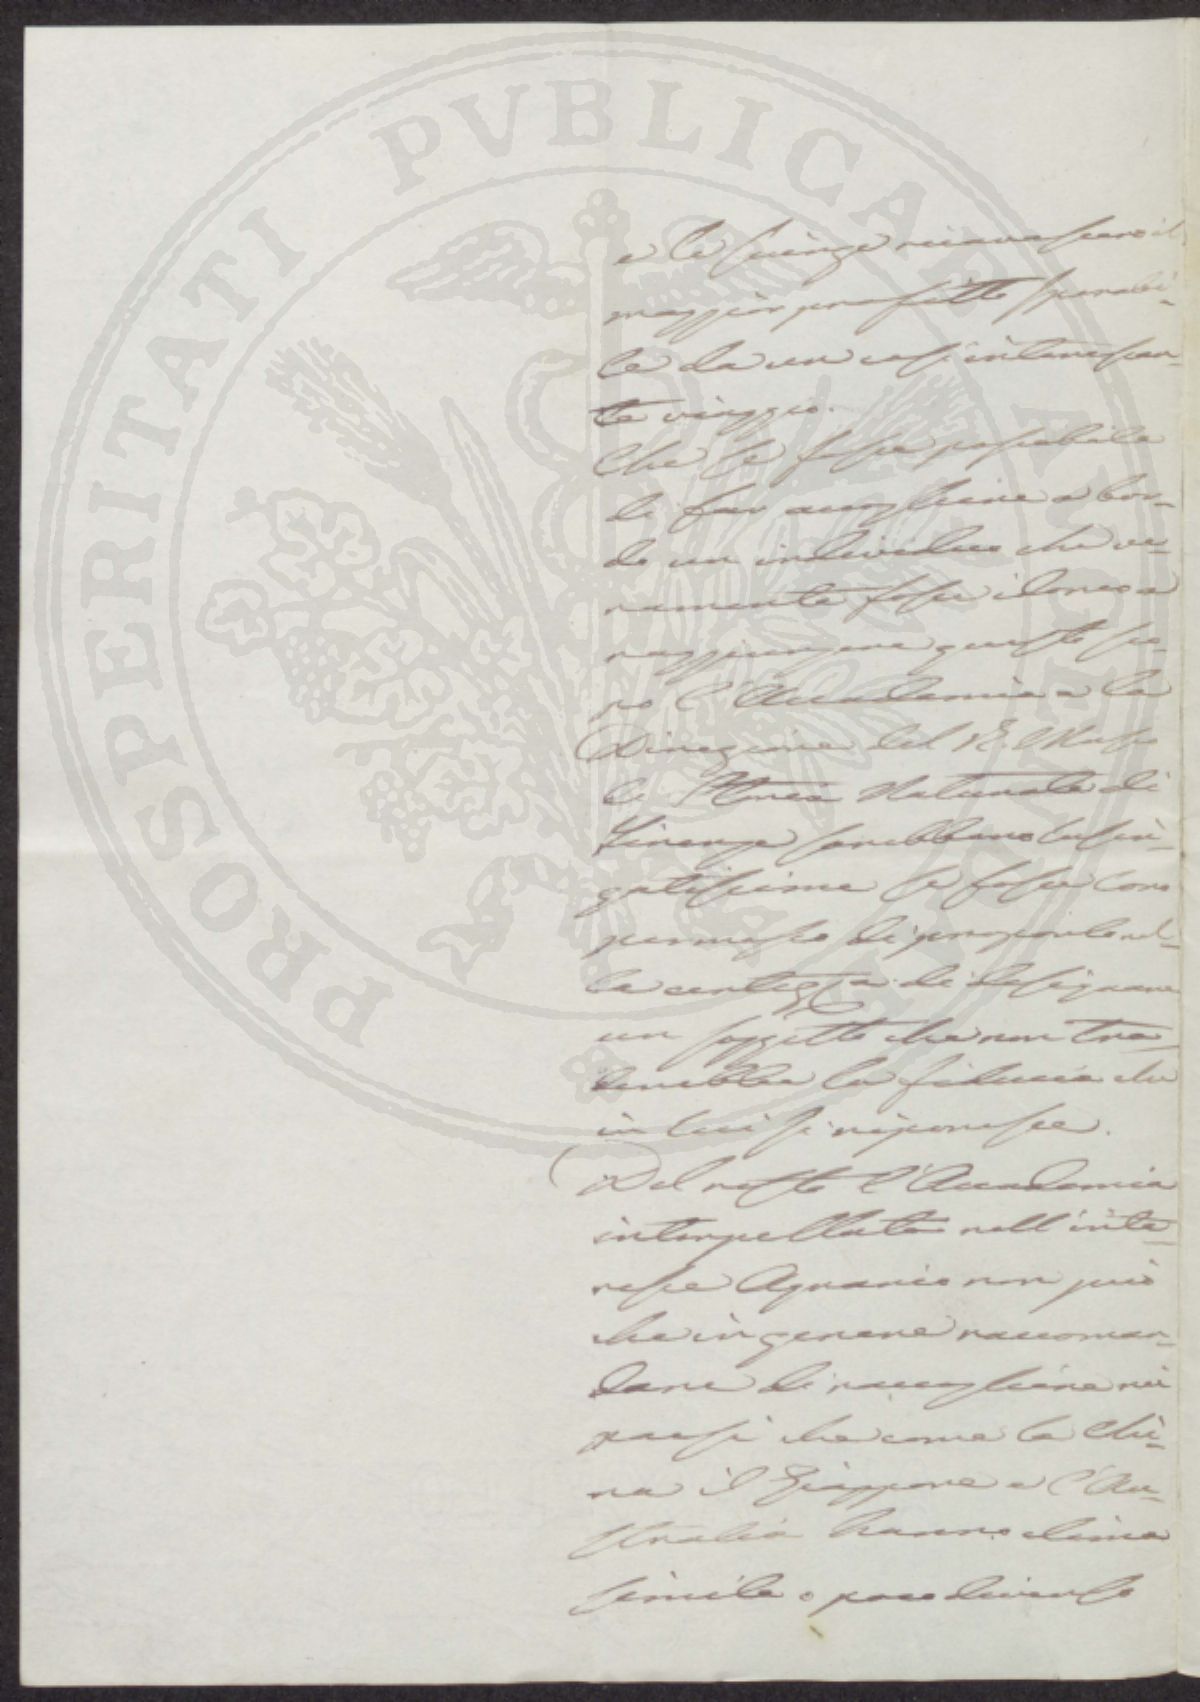 PROSPERITATI PVBLICAE AVGENDAE
e le scienze ricavassero il
maggior profitto sperabi-
le da un così interessan-
te viaggio.
Che se fosse possibile
di far accogliere a bor-
do un individuo che ve-
ramente fosse idoneo a
raggiungere questo sco-
po l'Accademia e la
Direzione del R. Museo
di Storia Naturale di
Firenze sarebbero lusin-
gatissime se fosse loro
permesso di proporlo nel-
la certezza di designare
un soggetto che non tra-
direbbe la fiducia che
in lui si riponesse.
Del resto l'Accademia
interpellata nell'inte-
resse Agrario non può
che in genere raccoman-
dare di raccogliere nei
paesi che come la Chi-
na il Giappone e l'Au-
stralia hanno clima
simile o poco diverso